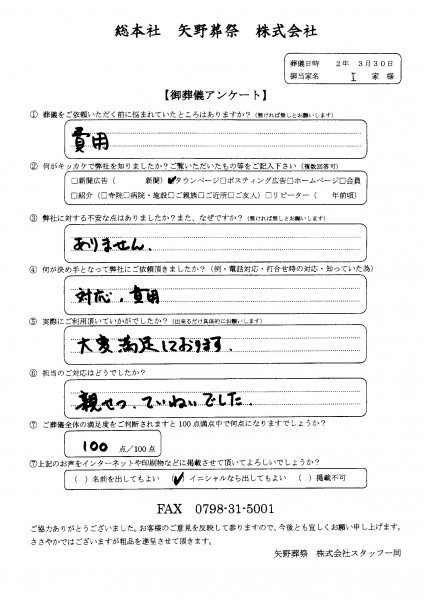 総本社 矢野葬祭 株式会社
葬儀日時 2年 3月30日
御当家名 I 家 様
【御葬儀アンケート】
① 葬儀をご依頼いただく前に悩まれていたところはありますか？(無ければ無しとお願いします)
費用
② 何がキッカケで弊社を知りましたか？ご覧いただいたもの等をご記入下さい(複数回答可)
□新聞広告( 新聞) ☑タウンページ□ポスティング広告□ホームページ□会員
□紹介(□寺院□病院・施設□ご親族□ご近所□ご友人)□リピーター( 年前頃)
③ 弊社に対する不安な点はありましたか？また、なぜですか？(無ければ無しとお願いします)
ありません.
④ 何が決め手となって弊社にご依頼頂きましたか？(例・電話対応・打合せ時の対応・知っていた為)
対応・費用
⑤ 実際にご利用頂いていかがでしたか？(出来るだけ具体的にお願いします)
大変満足しております.
⑥ 担当のご対応はどうでしたか？
親せつ、ていねいでした.
⑦ ご葬儀全体の満足度をご判断されますと100点満点中で何点になりますでしょうか？
100 点/100点
⑦上記のお声をインターネットや印刷物などに掲載させて頂いてよろしいでしょうか？
( )名前を出してもよい (✓)イニシャルなら出してもよい ( )掲載不可
FAX 0798-31-5001
ご協力ありがとうございました。お客様のご意見を反映して参りますので、今後とも宜しくお願い申し上げます。
ささやかではございますが粗品を進呈させて頂きます。
矢野葬祭 株式会社スタッフ一同